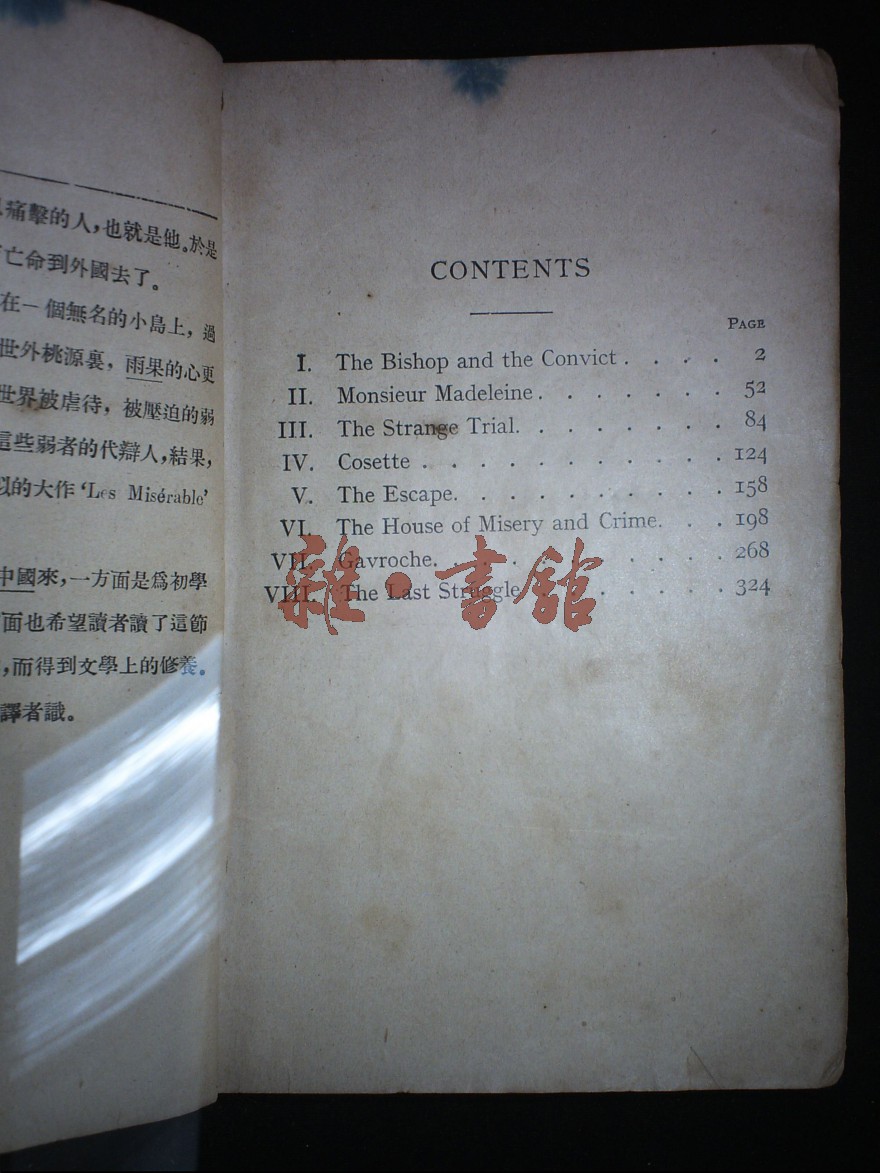 痛擊的人，也就是他。於是
亡命到外國去了。
在一個無名的小島上，過
世外桃源裏，雨果的心更
世界被虐待，被壓迫的弱
這些弱者的代辯人，結果，
的大作‘Les Misérable’
中國來，一方面是爲初學
面也希望讀者讀了這節
，而得到文學上的修養。
譯者識。
CONTENTS
PAGE
I. The Bishop and the Convict . . . . 2
II. Monsieur Madeleine . . . . . . . 52
III. The Strange Trial. . . . . . . . 84
IV. Cosette . . . . . . . . . . . 124
V. The Escape. . . . . . . . . . 158
VI. The House of Misery and Crime. . . 198
VII. Gavroche. . . . . . . . . . . 268
VIII. The Last Struggle . . . . . . . 324
雜·書館